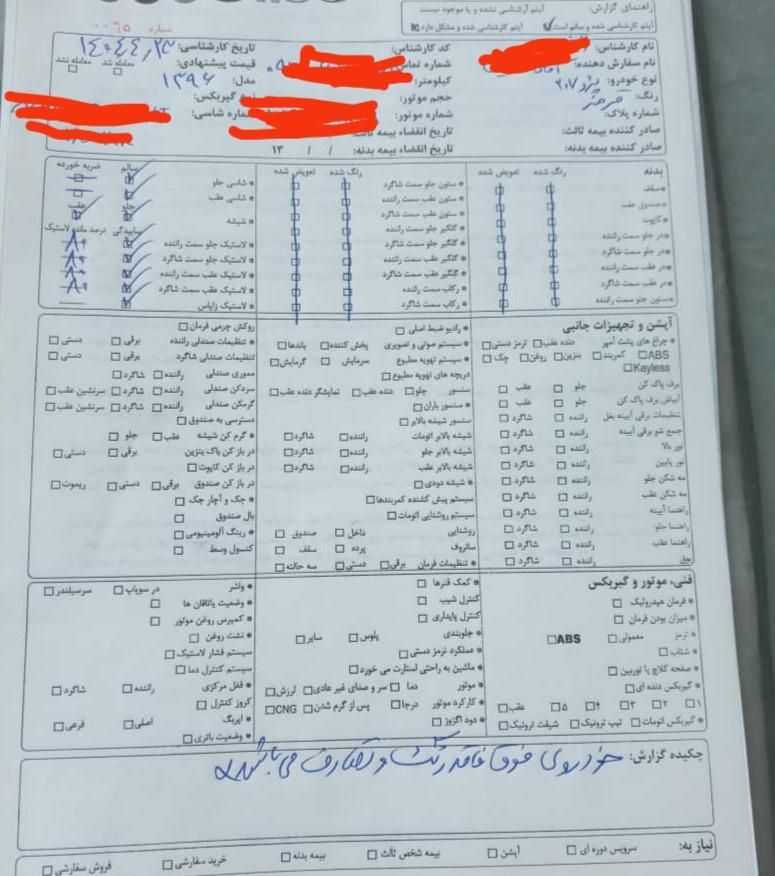 راهنمای گزارش:
آیتم کارشناسی نشده و یا موجود نیست
آیتم کارشناسی شده و سالم است
آیتم کارشناسی شده و مشکل دارد
شماره
نام کارشناس:
کد کارشناس:
تاریخ کارشناسی: ۱۴۰۴/۴/۲۳
نام سفارش دهنده:
شماره تماس
قیمت پیشنهادی:
معامله شد
معامله نشد
نوع خودرو: پژو ۲۰۷
کیلومتر:
مدل: ۱۳۹۶
رنگ: قرمز
حجم موتور:
نوع گیربکس:
شماره پلاک:
شماره موتور:
شماره شاسی:
صادر کننده بیمه ثالث:
تاریخ انقضاء بیمه ثالث:
صادر کننده بیمه بدنه:
تاریخ انقضاء بیمه بدنه: / / ۱۳
بدنه رنگ شده تعویض شده
*سقف
*صندوق عقب
*کاپوت
*در جلو سمت راننده
*در جلو سمت شاگرد
*در عقب سمت راننده
*در عقب سمت شاگرد
*ستون جلو سمت راننده
رنگ شده تعویض شده
* ستون جلو سمت شاگرد
* ستون عقب سمت راننده
* ستون عقب سمت شاگرد
* گلگیر جلو سمت راننده
* گلگیر جلو سمت شاگرد
* گلگیر عقب سمت راننده
* گلگیر عقب سمت شاگرد
* رکاب سمت راننده
* رکاب سمت شاگرد
سالم ضربه خورده
* شاسی جلو
* شاسی عقب
جلو عقب
* شیشه
ساییدگی درصد مانده لاستیک
* لاستیک جلو سمت راننده ۸۰
* لاستیک جلو سمت شاگرد ۸۰
* لاستیک عقب سمت راننده ۸۰
* لاستیک عقب سمت شاگرد ۸۰
* لاستیک زاپاس
آپشن و تجهیزات جانبی
* چراغ های پشت آمپر دنده عقب ترمز دستی
ABS کمربند بنزین روغن چک
Kayless
برف پاک کن جلو عقب
آبپاش برف پاک کن جلو عقب
تنظیمات برقی آیینه بغل راننده شاگرد
جمع شو برقی آیینه راننده شاگرد
نور بالا راننده شاگرد
نور پایین راننده شاگرد
مه شکن جلو راننده شاگرد
مه شکن عقب راننده شاگرد
راهنما آیینه راننده شاگرد
راهنما جلو راننده شاگرد
راهنما عقب راننده شاگرد
بوق راننده شاگرد
* رادیو ضبط اصلی
* سیستم صوتی و تصویری پخش کننده باندها
* سیستم تهویه مطبوع سرمایش گرمایش
دریچه های تهویه مطبوع
سنسور جلو دنده عقب نمایشگر دنده عقب
* سنسور باران
سنسور شیشه بالابر
شیشه بالابر اتومات راننده شاگرد
شیشه بالابر جلو راننده شاگرد
شیشه بالابر عقب راننده شاگرد
* شیشه دودی
سیستم پیش کشنده کمربندها
سیستم روشنایی اتومات
روشنایی داخل صندوق
سانروف پرده سقف
* تنظیمات فرمان برقی دستی سه حالته
روکش چرمی فرمان
* تنظیمات صندلی راننده برقی دستی
تنظیمات صندلی شاگرد برقی دستی
مموری صندلی راننده شاگرد
سردکن صندلی راننده شاگرد سرنشین عقب
گرمکن صندلی راننده شاگرد سرنشین عقب
دسترسی به صندوق
* گرم کن شیشه عقب جلو
در باز کن باک بنزین برقی دستی
در باز کن کاپوت
در باز کن صندوق برقی دستی ریموت
* جک و آچار جک
بال صندوق
* رینگ آلومینیومی
کنسول وسط
فنی، موتور و گیربکس
* فرمان هیدرولیک
* میزان بودن فرمان
* ترمز معمولی ABS
* شتاب
* صفحه کلاچ یا توربین
* گیربکس دنده ای
۱ ۲ ۳ ۴ ۵ عقب
* گیربکس اتومات تیپ ترونیک شیفت ترونیک
* کمک فنرها
کنترل شیب
کنترل پایداری
* جلوبندی پلوس سایر
* عملکرد ترمز دستی
* ماشین به راحتی استارت می خورد
* موتور دما سر و صدای غیر عادی لرزش
* کارکرد موتور درجا پس از گرم شدن CNG
* دود اگزوز
* واشر در سوپاپ سرسیلندر
* وضعیت یاتاقان ها
* کمپرس روغن موتور
* نشت روغن
سیستم فشار لاستیک
سیستم کنترل دما
* قفل مرکزی راننده شاگرد
کروز کنترل
* ایربگ اصلی فرعی
* وضعیت باتری
چکیده گزارش: خودروی فوق فاقد رنگ و تصادف می باشد
نیاز به: سرویس دوره ای آپشن بیمه شخص ثالث بیمه بدنه خرید سفارشی فروش سفارشی